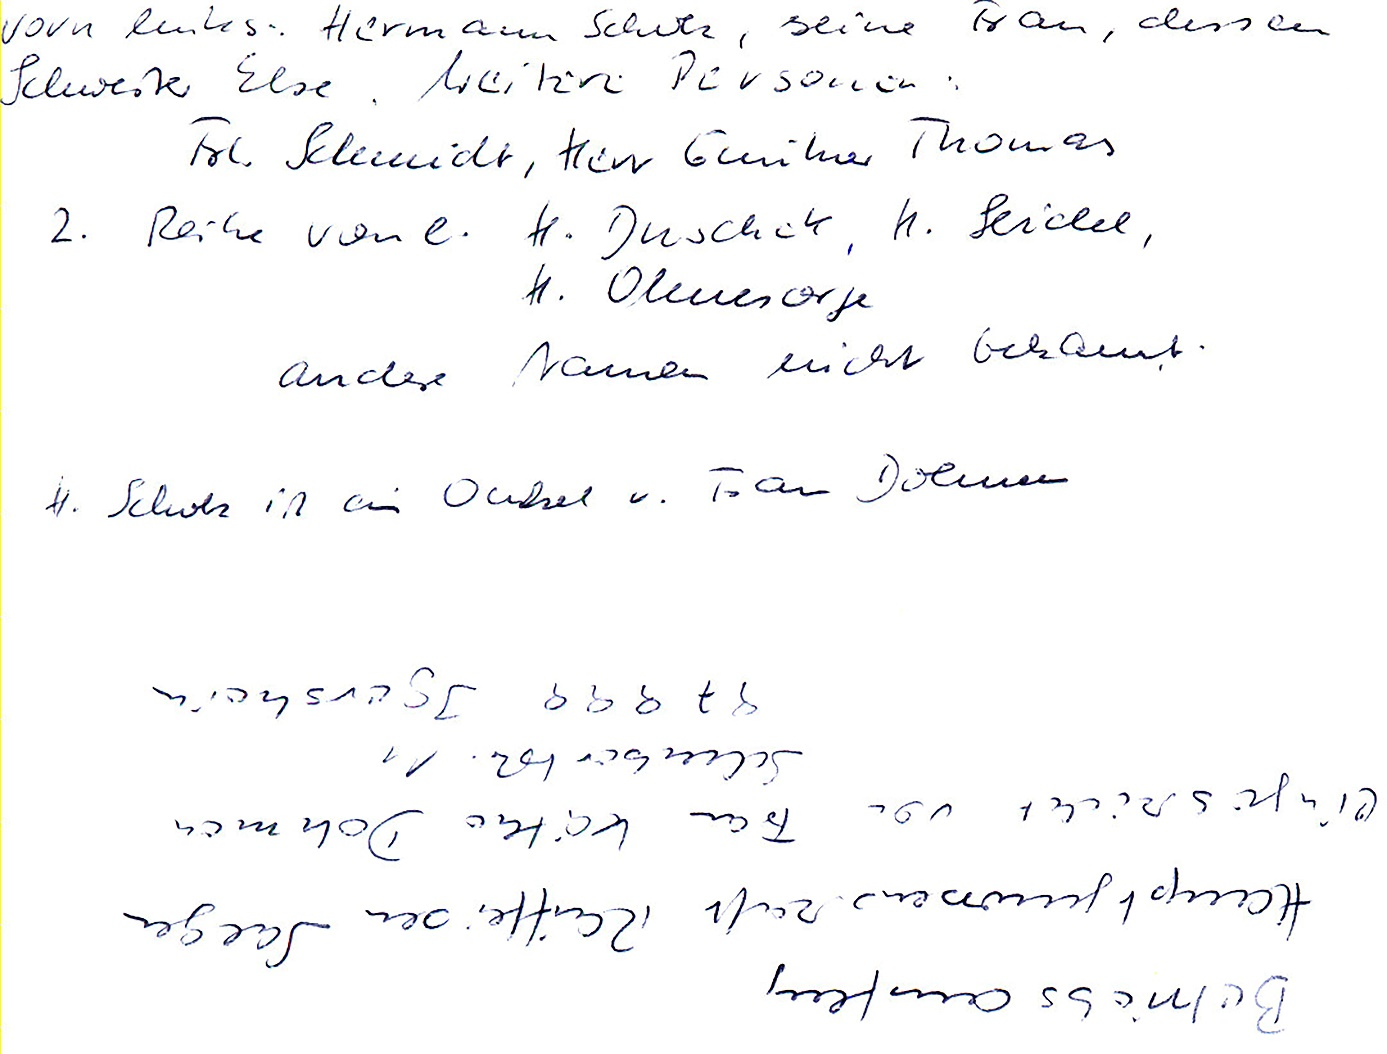 vorn links: Hermann Scholz, seine Frau, dessen
Schwester Else. Weitere Personen:
Frl. Schmidt, Herr Günther Thomas
2. Reihe von l. H. Duschek, H. Seidel,
H. Ohnesorge
andere Namen nicht bekannt.
H. Scholz ist ein Onkel v. Frau Dohmen
Betriebsausflug
Hauptgenossenschaft Raiffeisen Sagan
eingereicht von Frau Käthe Dohmen
Schubertstr. 11
97999 Igersheim